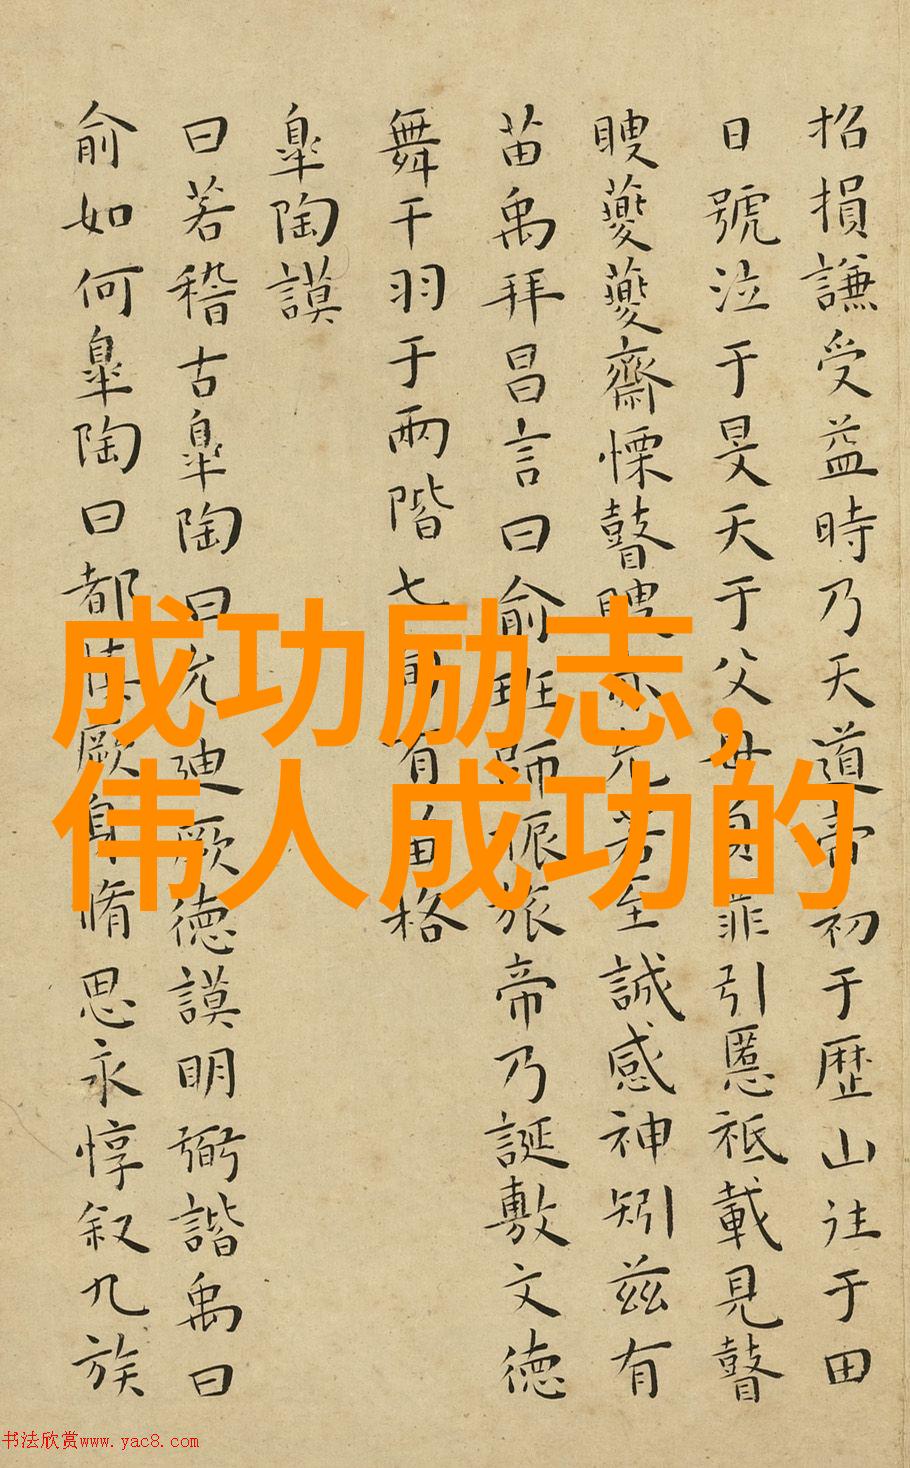 招損謙受益時乃天道帝初于歴山往于田
日號泣于旻天于父母負罪引慝祗載見瞽
瞍夔夔齋慄瞽瞍亦允若至誠感神矧茲有
苗禹拜昌言曰俞班師振旅帝乃誕敷文德
舞干羽于兩階七旬有苗格
皐陶謨
曰若稽古皐陶曰允迪厥德謨明弼諧禹曰
俞如何皐陶曰都慎厥身脩思永惇叙九族
成功励志,
伟人成功的
书法欣赏www.yac8.com